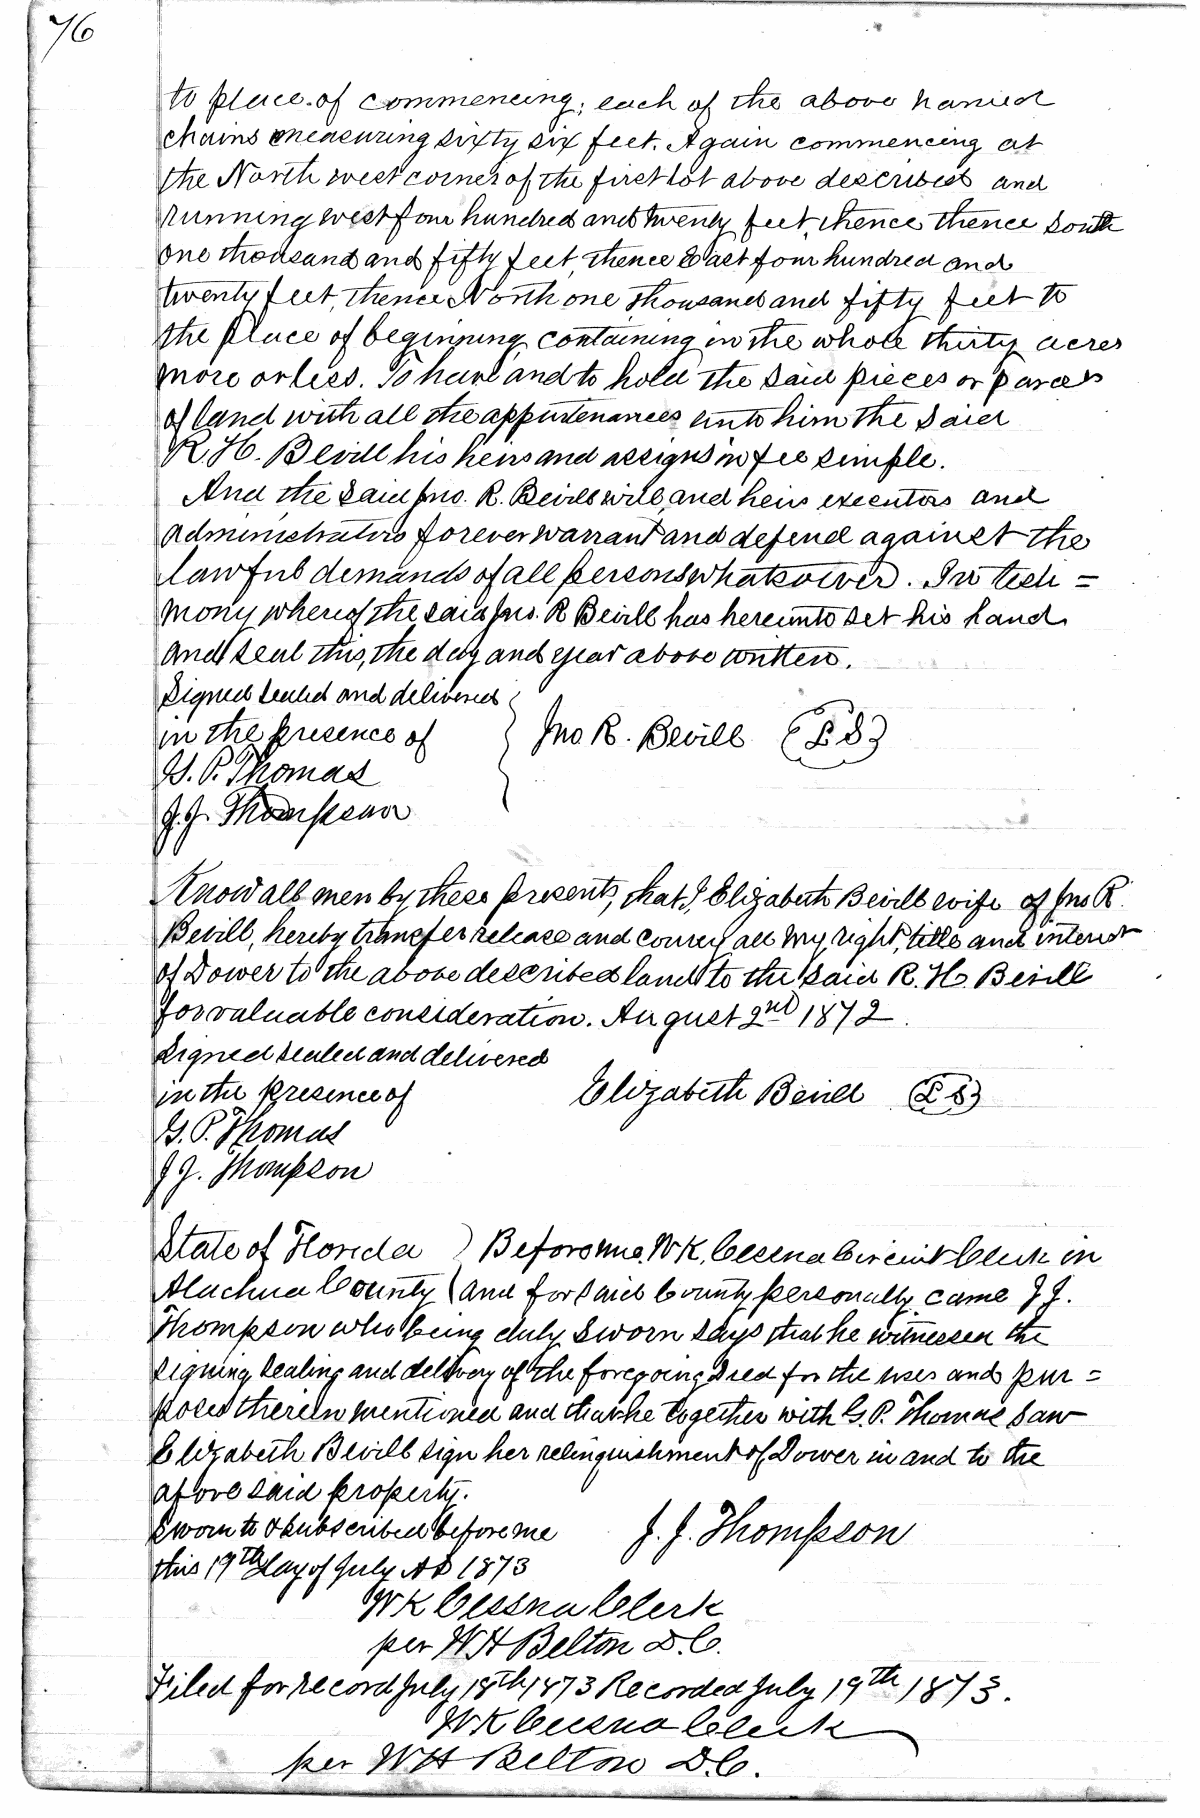 76
to place of commencing, each of the above named
chains measuring sixty six feet. Again commencing at
the North west corner of the first lot above described and
running west four hundred and twenty feet, thence thence south
one thousand and fifty feet, thence East four hundred and
twenty feet, thence North one thousand and fifty feet to
the place of beginning, containing in the whole thirty acres
more or less. To have and to hold the said pieces or parcels
of land with all the appurtenances unto him the said
R. H. Bevill his heirs and assigns in fee simple.
And the said Jno. R. Bevill will, and heirs executors and
administrators forever warrant and defend against the
lawful demands of all persons whatsoever. In testi =
mony whereof the said Jno. R Bevill has hereunto set his hand
and seal this, the day and year above written.
Signed sealed and delivered
in the presence of Jno R. Bevill (L S)
G. P. Thomas
J. J. Thompson
Know all men by these presents, that I, Elizabeth Bevill wife of Jno R.
Bevill, hereby transfer release and convey all my right, title and interest
of Dower to the above described land to the said R. H. Bevill
for valuable consideration. August 2nd 1872.
Signed sealed and delivered
in the presence of Elizabeth Bevill (L S)
G. P. Thomas
J J. Thompson
State of Florida ) Before me, W K, Cessna Circuit Clerk in
Alachua County ( and for said County personally came J J.
Thompson who being duly sworn says that he witnessed the
signing, sealing and delivery of the foregoing Deed for the uses and pur =
poses therein mentioned and that he together with G. P. Thomas saw
Elizabeth Bevill sign her relinquishment of Dower in and to the
above said property.
Sworn to & subscribed before me J. J. Thompson
this 19th day of July AD 1873
W K Cessna Clerk
per W H Belton D. C.
Filed for record July 18th 1873 Recorded July 19th 1873.
W K Cessna Clerk
per W H Belton D. C.